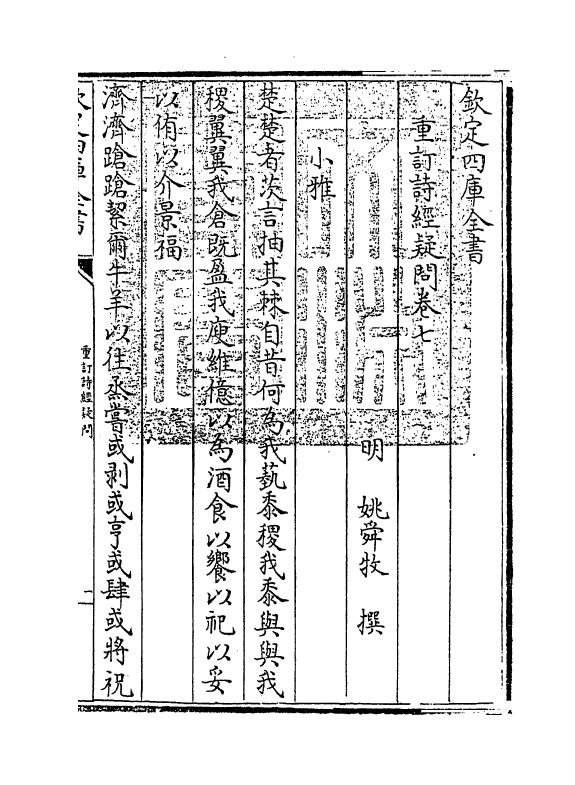 欽定四庫全書
重訂詩經疑問卷七
明 姚舜牧 撰
小雅
楚楚者茨言抽其棘自昔何為我蓺黍稷我黍與與我
稷翼翼我倉既盈我庾維億以為酒食以饗以祀以妥
以侑以介景福
濟濟蹌蹌絜爾牛羊以往烝嘗或剥或亨或肆或將祝
欽定四庫全書
重訂詩經疑問
一